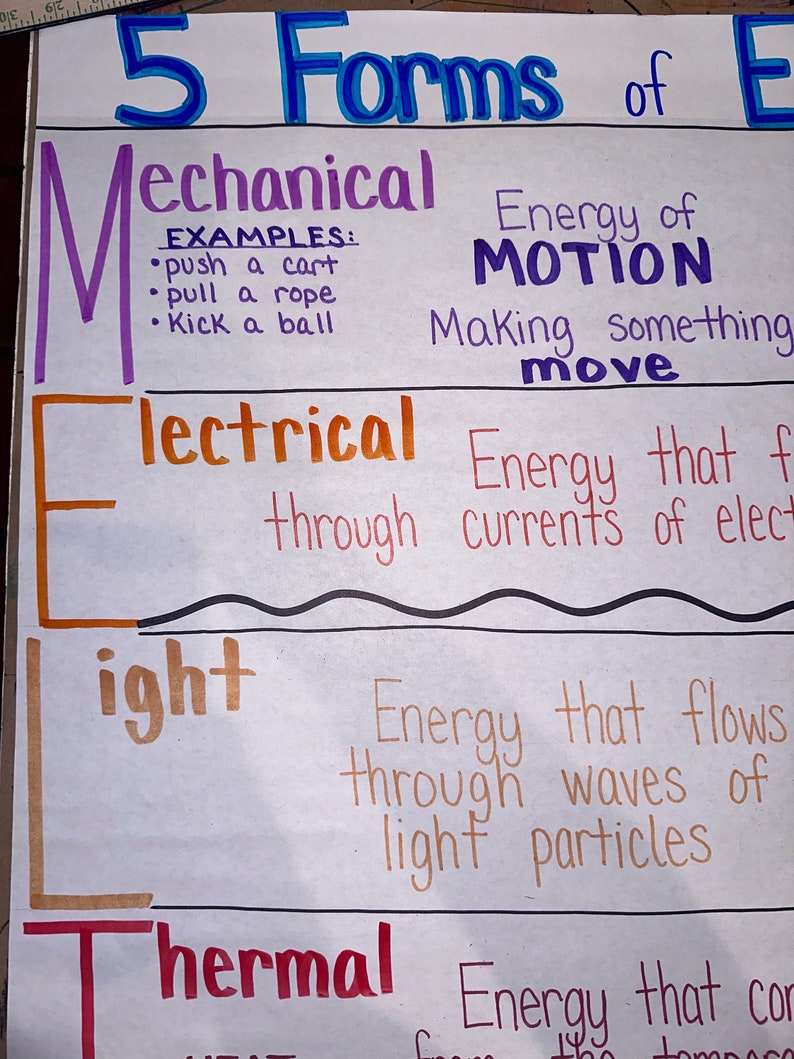 5 Forms of E
Mechanical
EXAMPLES:
•push a cart
•pull a rope
•Kick a ball
Energy of
MOTION
Making something
move
Electrical
Energy that f
through currents of elect
Light
Energy that flows
through waves of
light particles
Thermal
Energy that co
HEAT
from the tempera